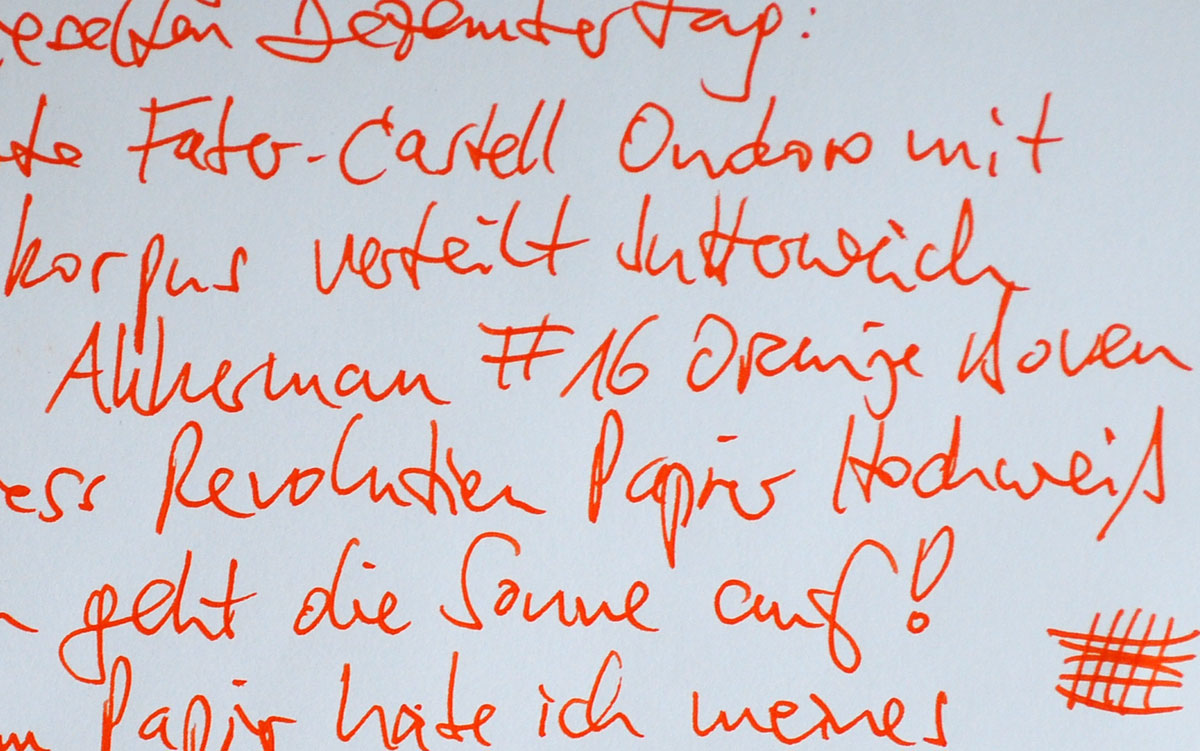 Dezembertag:
Faber-Castell Ondoro mit
korpus verteilt butterweich
Akkerman #16 Oranje Boven
ess Revolution Papier Hochweiß
geht die Sonne auf!
Papier habe ich meines